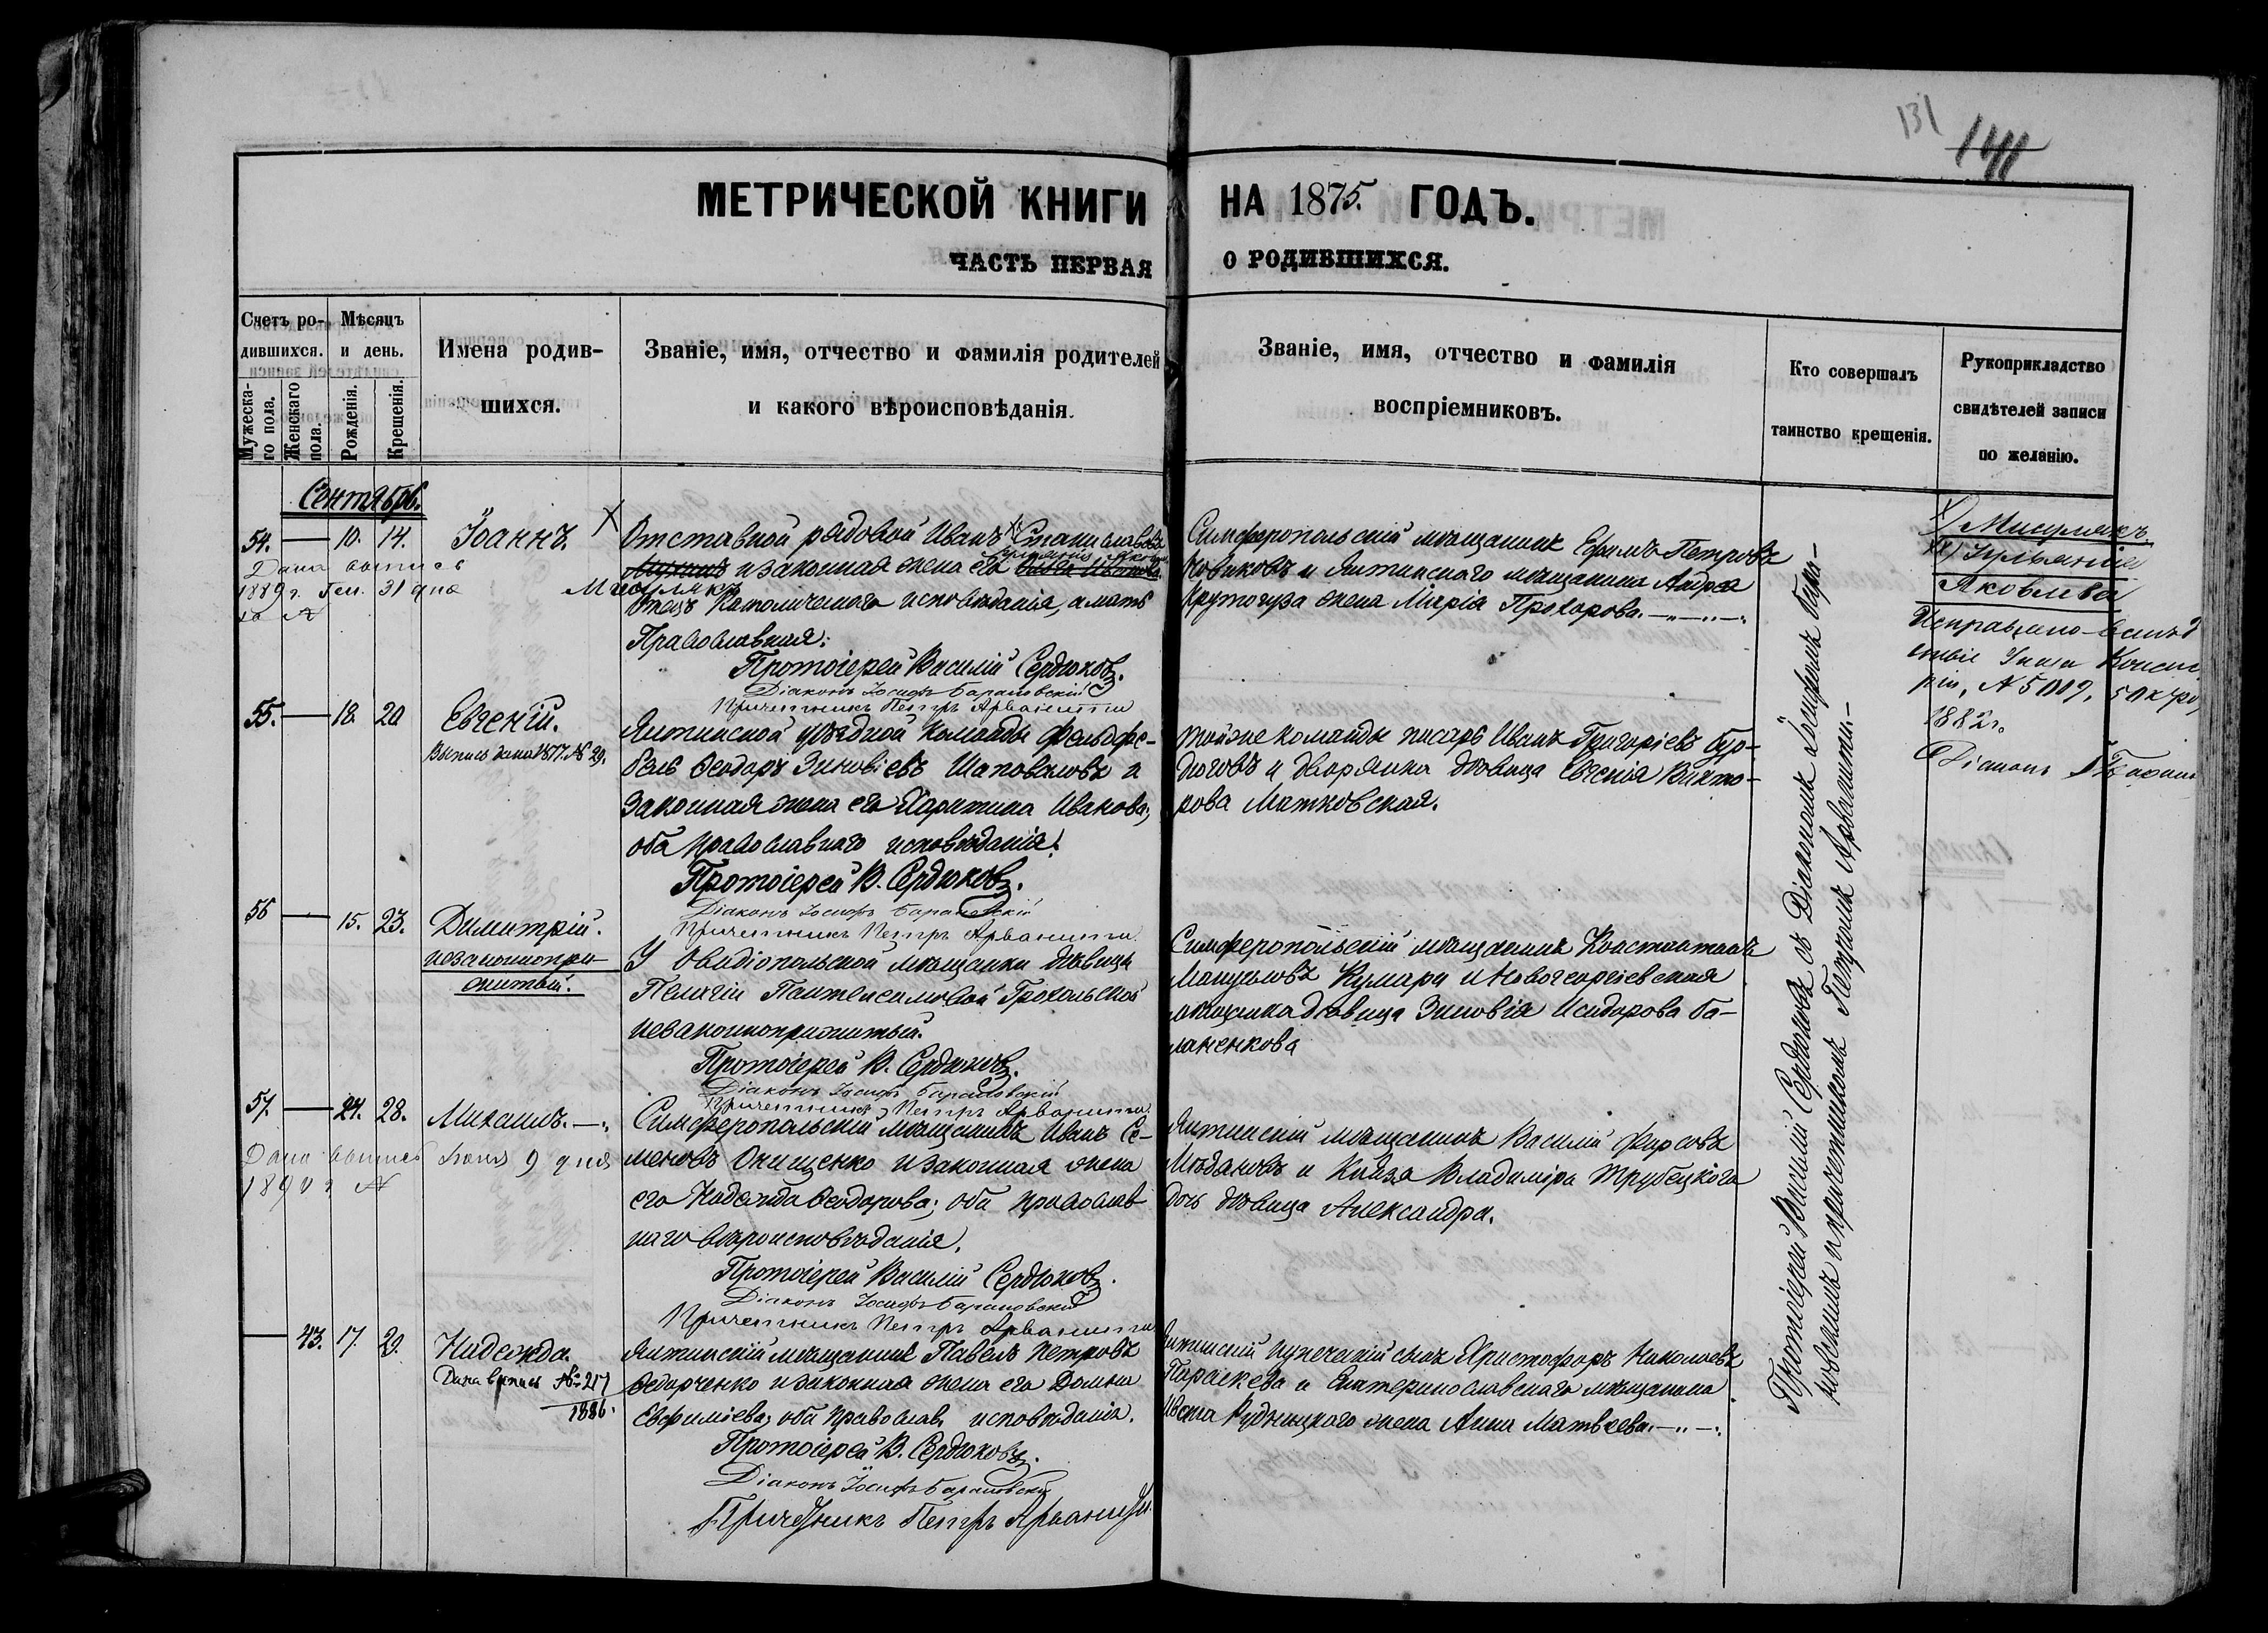 131
МЕТРИЧЕСКОЙ КНИГИ НА 1875. ГОДЪ.
ЧАСТЬ ПЕРВАЯ О РОДИВШИХСЯ.
Счетъ ро-
дившихся.
Мужеска-
го пола.
Женскаго
пола.
Мѣсяцъ
и день.
Рожденія.
Крещенія.
Имена родив-
шихся.
Званіе, имя, отчество и фамилія родителей
и какого вѣроисповѣданія.
Званіе, имя, отчество и фамилія
воспріемниковъ.
Кто совершалъ
таинство крещенія.
Рукоприкладство
свидѣтелей записи
по желанію.
Сентябрь.
54. — 10. 14. Іоаннъ.
Дана выпись
1889 г. Ген. 31 дня
за №
Отставной рядовой Иванъ Станиславовъ
и законная жена его
отецъ Католическаго исповѣданія, а мать
Православная.
Протоіерей Василій Сердюковъ.
Діаконъ Іосифъ Барановскій
Причетникъ Петръ Арванити
Симферопольскій мѣщанинъ Ефимъ Петровъ
Новиковъ и Ялтинскаго мѣщанина Андрея
жена Марія Прохорова.
Яковлева
Исправлено вслѣд
ствіе Указа Консис
ріи, № 5009,
1882 г.
Діаконъ
55. — 18. 20 Евгеній.
Выпись дана 1877. № 29.
Ялтинской уѣздной команды фельдфе-
бель Ѳеодоръ Зиновіевъ Шаповаловъ и
законная жена его Харитина Иванова,
оба православнаго исповѣданія.
Протоіерей В. Сердюковъ.
Діаконъ Іосифъ Барановскій
Причетникъ Петръ Арванити
тойже команды писарь Иванъ Григоріевъ Бур-
и дворянка дѣвица Евгенія Викто-
рова Матковская.
56 — 15. 23. Димитрій.
незаконнопри
житый.
У Овидіопольской мѣщанки дѣвицы
Пелагіи Пантелеимоновой
незаконноприжитый.
Протоіерей В. Сердюковъ.
Діаконъ Іосифъ Барановскій
Причетникъ Петръ Арванити
Симферопольскій мѣщанинъ Константинъ
Мануиловъ Кумари и Новогеоргіевская
мѣщанка дѣвица Зиновія Исидорова Ба-
ланенкова
57. — 24. 28. Михаилъ.
Дана выпись 9 дня
Симферопольскій мѣщанинъ Иванъ Се-
меновъ Онищенко и законная жена
его Надежда Ѳеодорова; оба православ
наго вѣроисповѣданія.
Протоіерей Василій Сердюковъ.
Діаконъ Іосифъ Барановскій
Причетникъ Петръ Арванити
Ялтинскій мѣщанинъ Василій Фирсовъ
и Князя Владиміра Трубецкаго
дочь дѣвица Александра.
— 43. 17. 29. Надежда.
Дана выпись № 217
1886.
Ялтинскій мѣщанинъ Павелъ Петровъ
Ѳедорченко и законная жена его Домна
Евфиміева, оба православ. исповѣданія.
Протоіерей В. Сердюковъ.
Діаконъ Іосифъ Барановскій
Причетникъ Петръ Арванити.
Ялтинскій купеческій сынъ Христофоръ Николаевъ
Параскева и Екатеринославскаго мѣщанина
Ивана Рудницкаго жена Анна Матвѣева.
Протоіерей Василій Сердюковъ съ Діакономъ Іосифомъ Бара-
новскимъ и причетникомъ Петромъ Арванити.